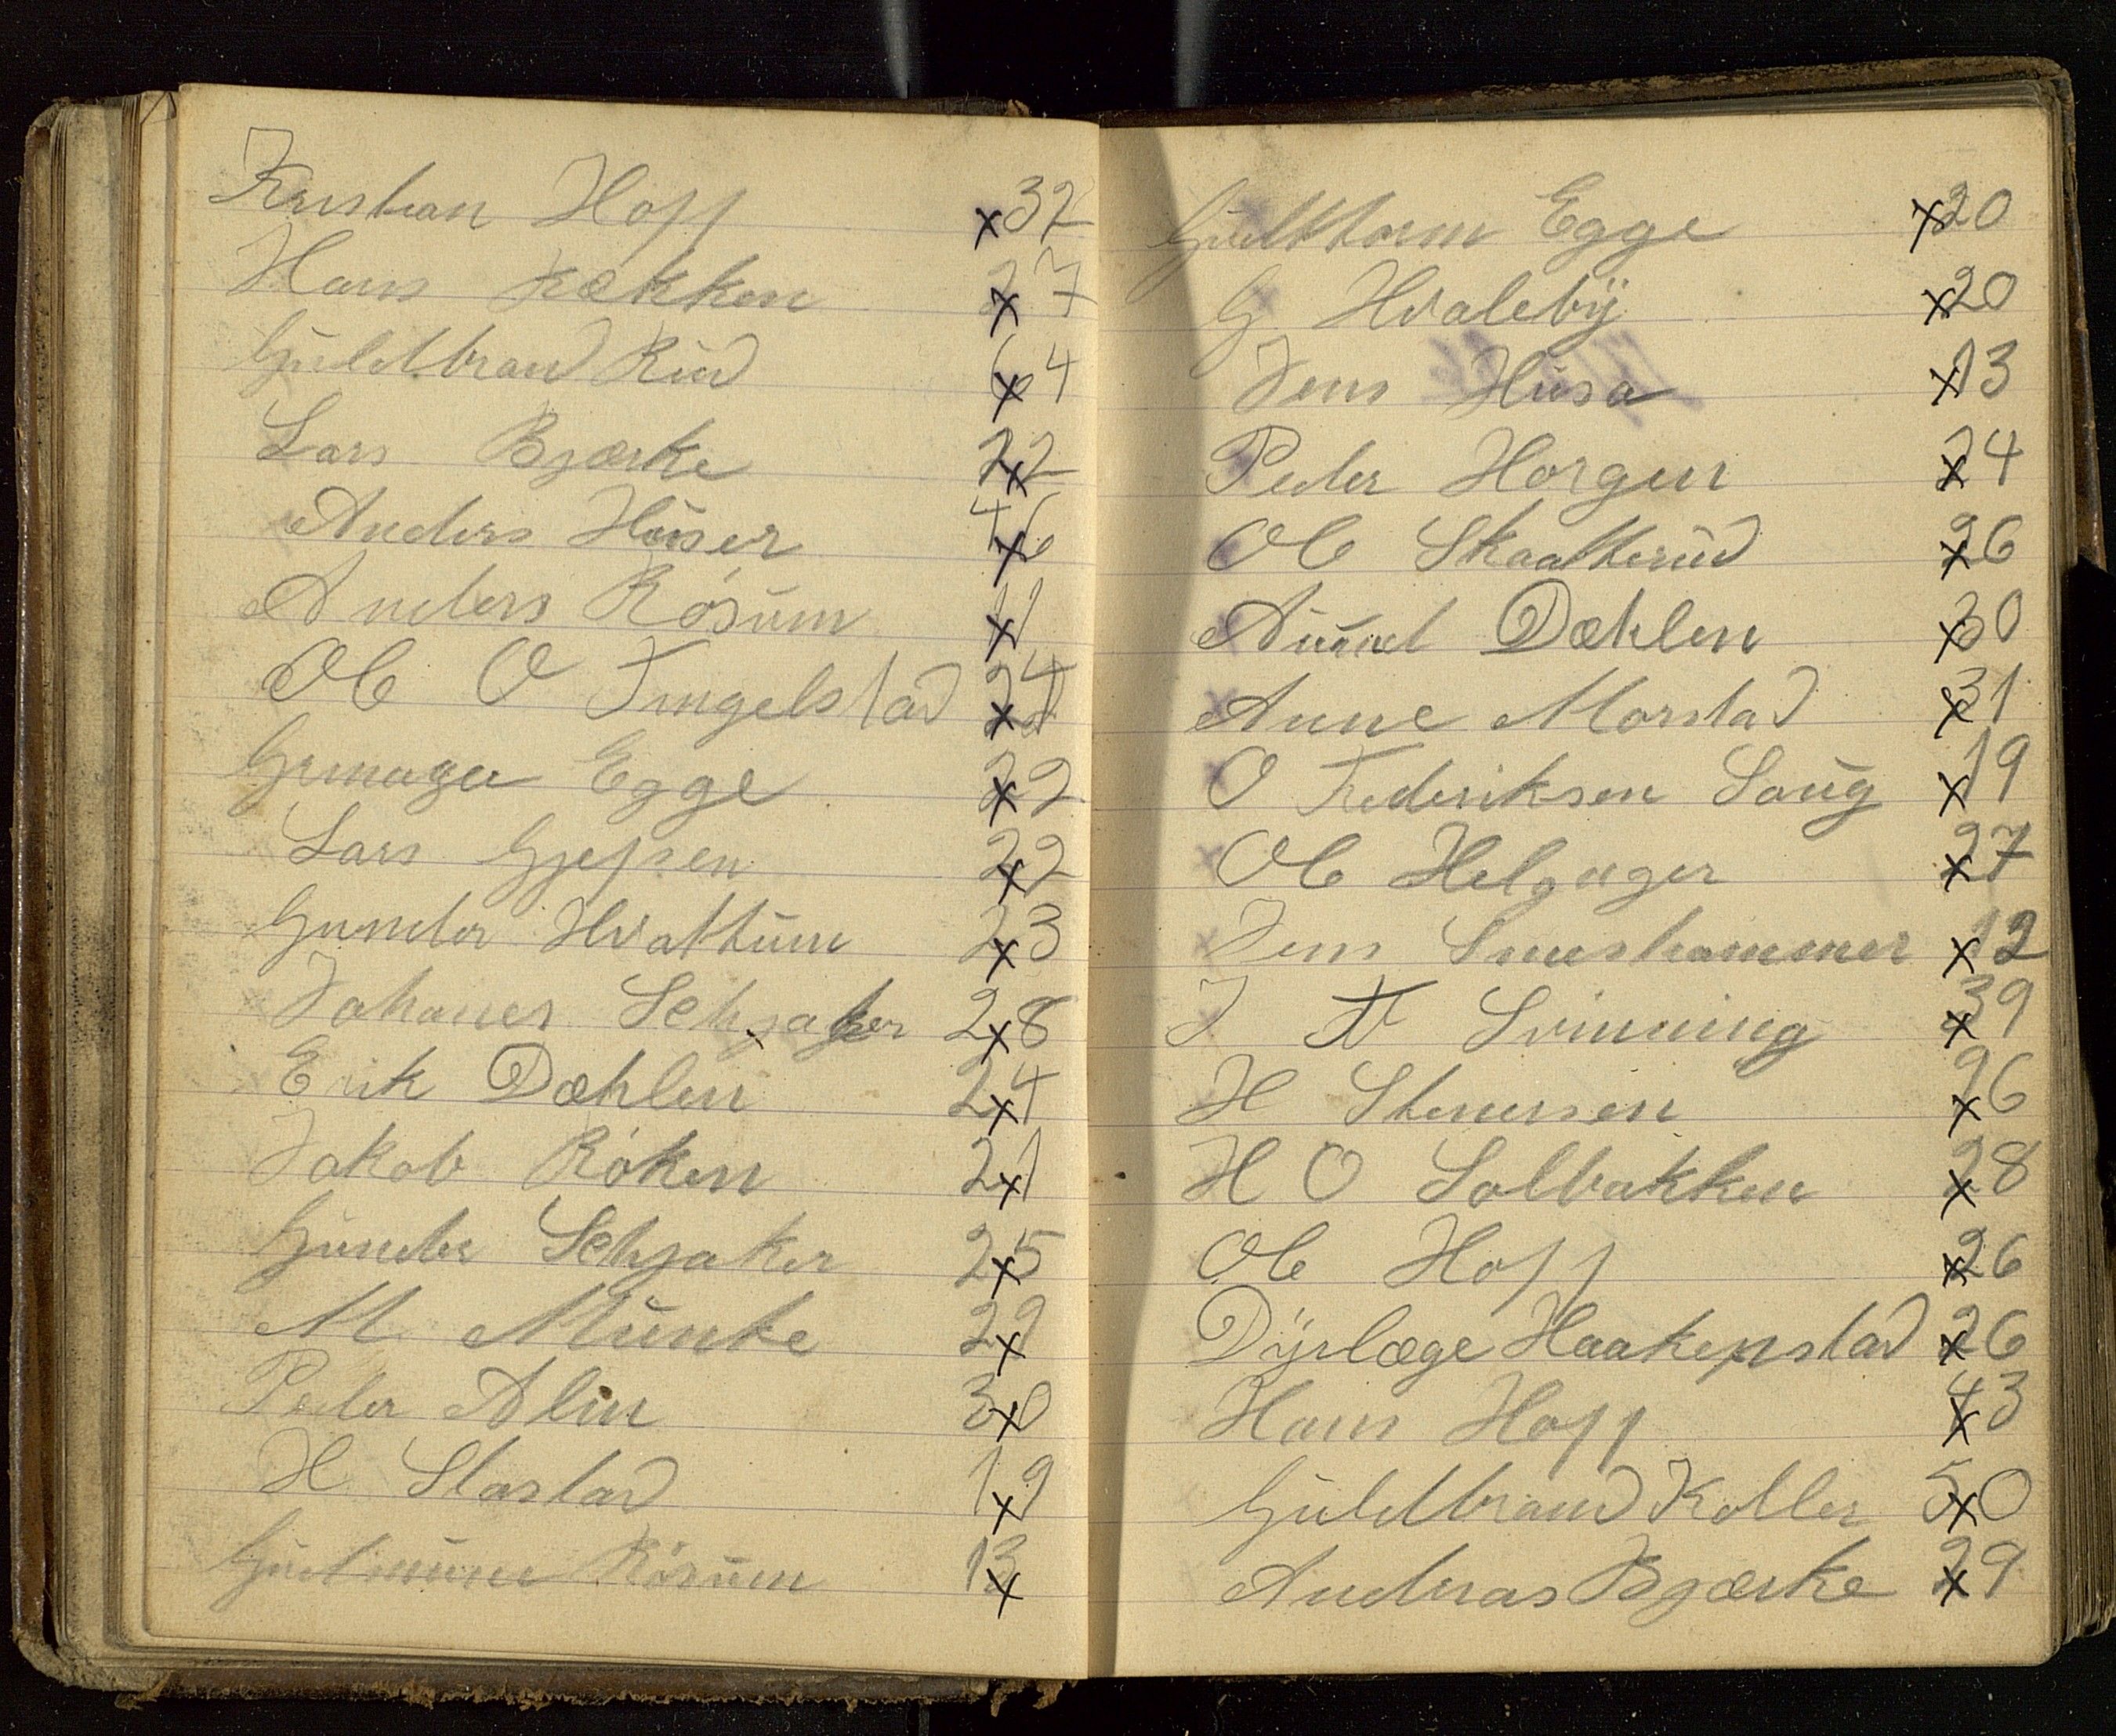 Kristian Hopp x32
Hans Rækken 27
Guldbrand Rud 64
Lars Bjærke 22
Anders Huser 46
Anders Rosum 11
Ole O Tingelstad 24
Egge 22
Lars Gjepsen 22
Gunder Hvattum 23
Johanes Sehjaker 28
Erik Dæhlen 24
Jakob Róken 21
Gunder Sehjaker 25
M Munke 29
Peder Alin 30
H Slastad 19
Gudmunn Rósum 13
Guttorm Egge x20
G Hvaleby x20
Jens Husa x13
Peder Horgen 24
Ole Skaatterud 26
Dæhlen x30
Anne Morstad 31
O Frederiksen Saug x19
Ole Helgager 27
Jens Smeshammer x12
J N Svinning 39
H Stenersen 26
H O Solbakken 28
Ole Hopp 26
Dyrlæge Haakenstad 26
Hans Hopp 43
Guldbrand Koller 50
Andreas Bjærke 29